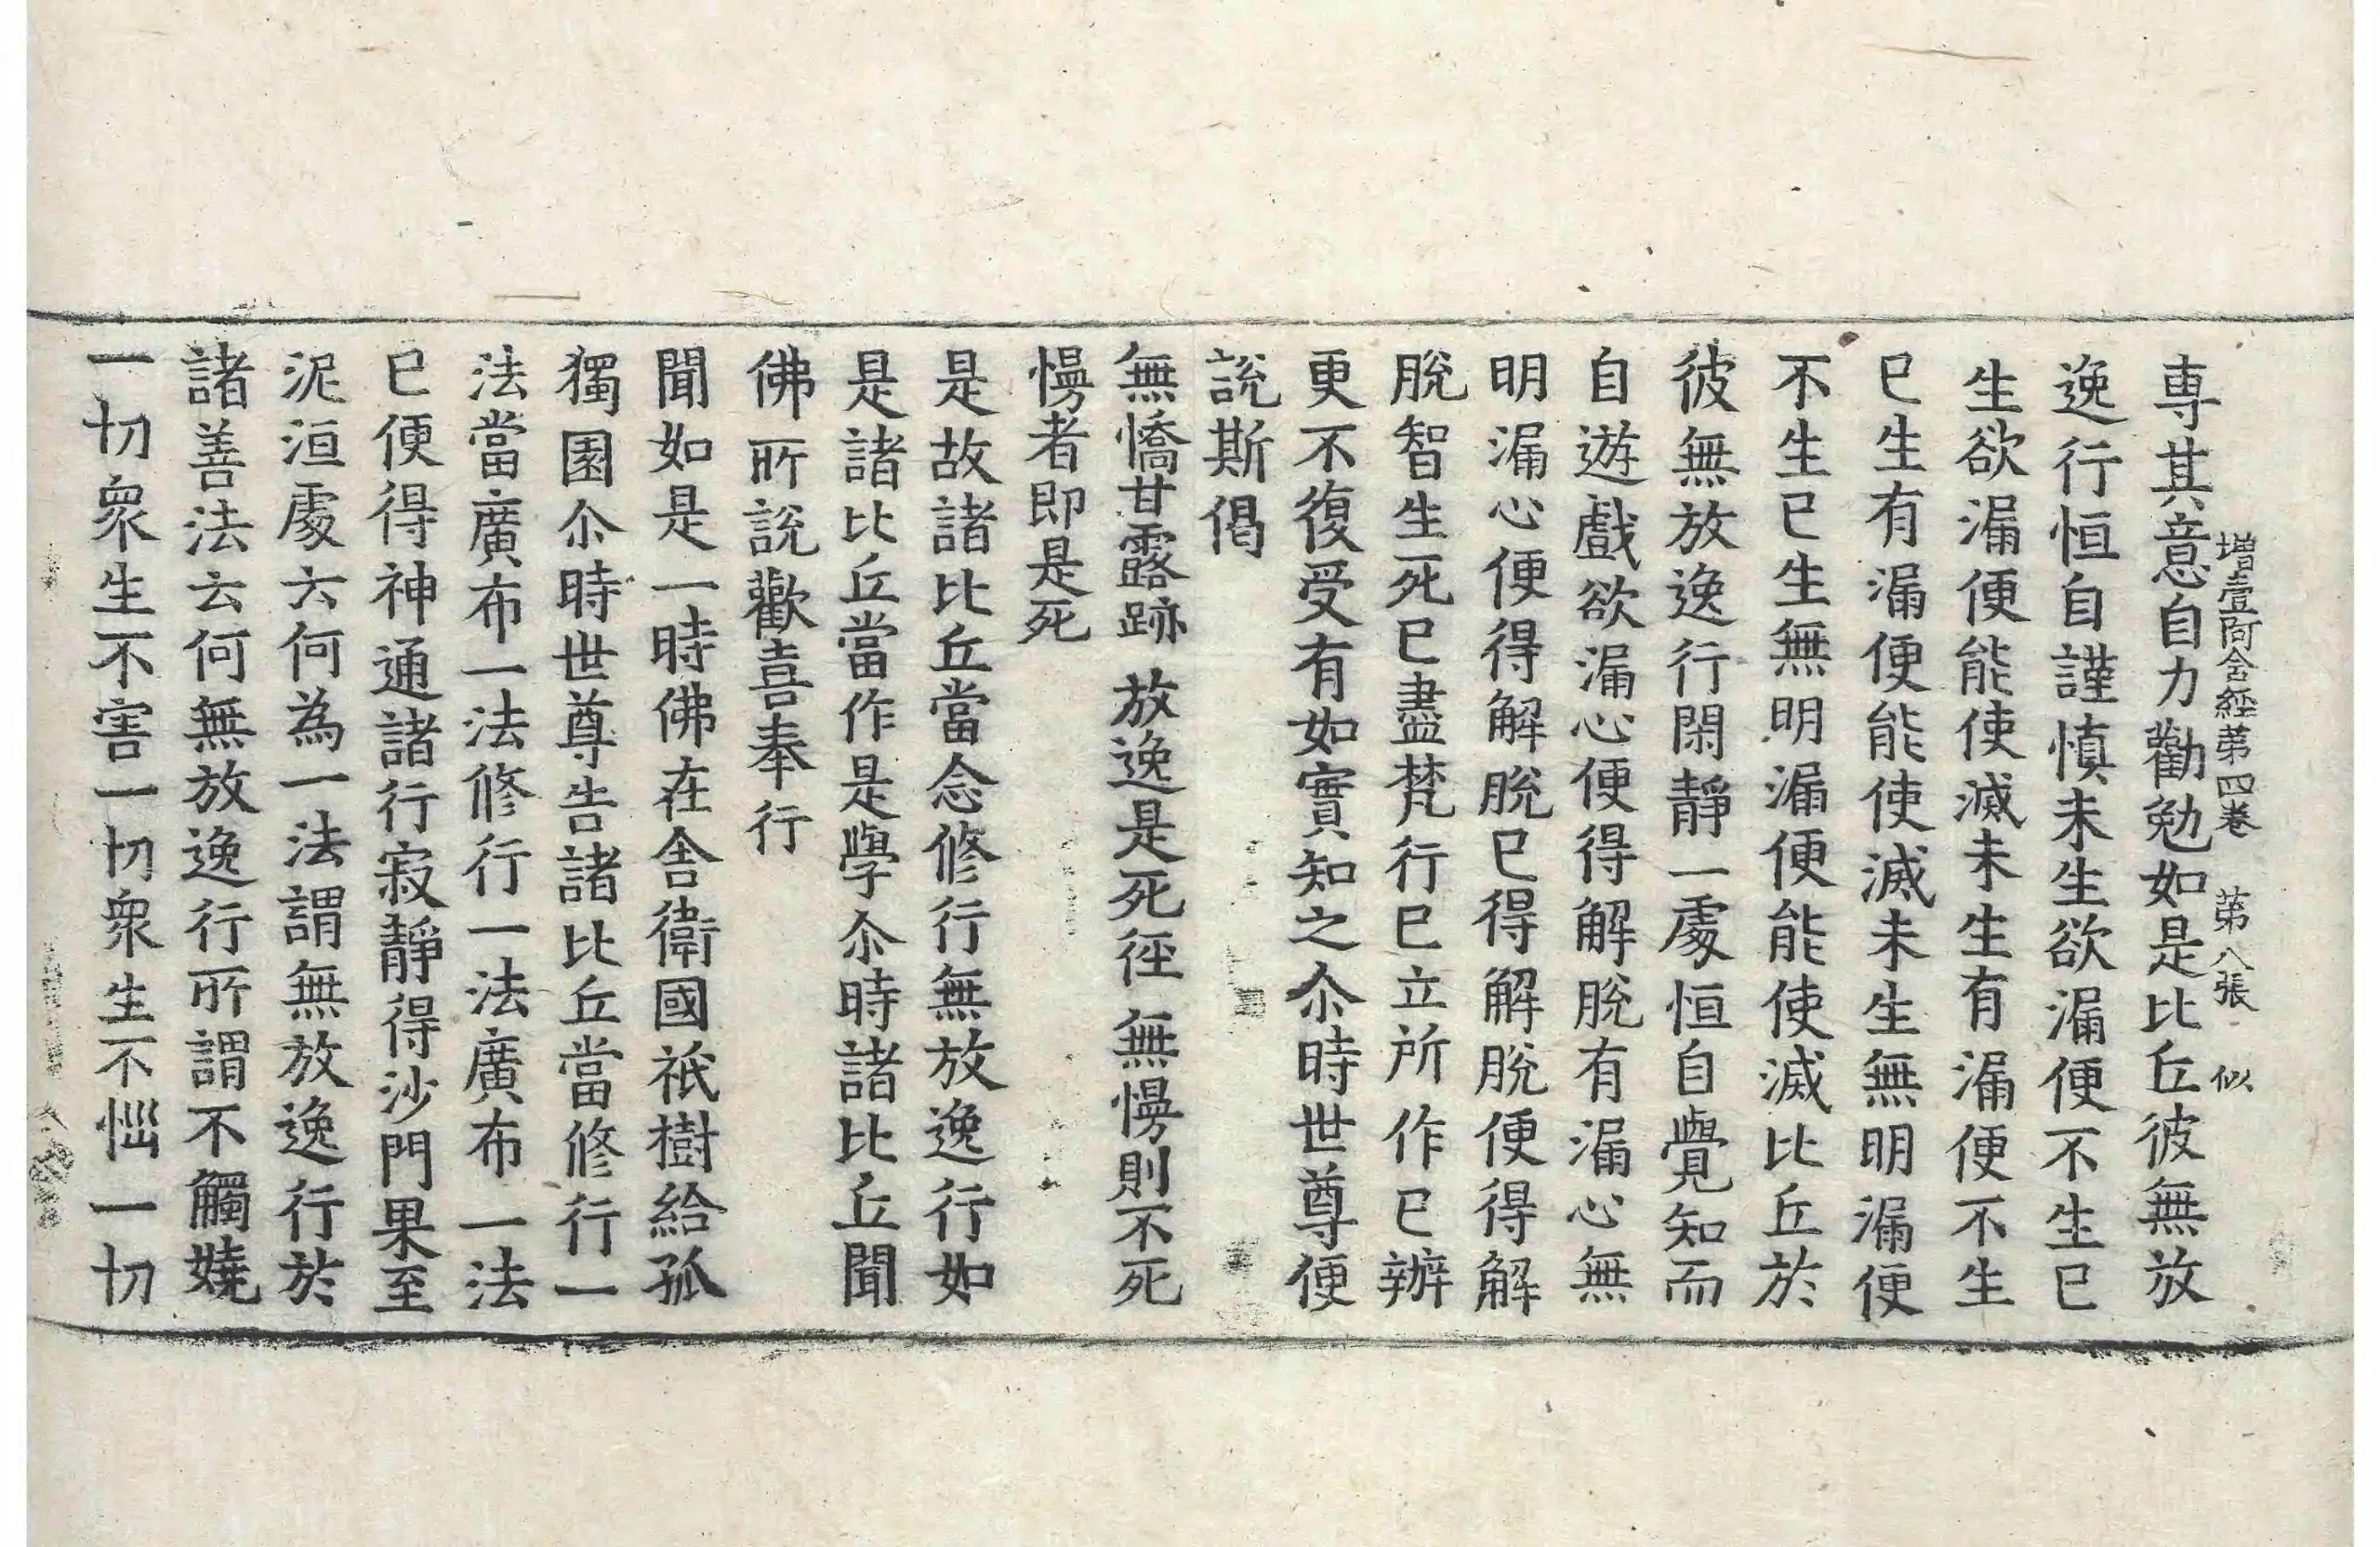 增壹阿含經第四卷 第八張 似
專其意自力勸勉如是比丘彼無放
逸行恒自謹慎未生欲漏便不生已
生欲漏便能使滅未生有漏便不生
已生有漏便能使滅未生無明漏便
不生已生無明漏便能使滅比丘於
彼無放逸行閑靜一處恒自覺知而
自遊戲欲漏心便得解脫有漏心無
明漏心便得解脫已得解脫便得解
脫智生死已盡梵行已立所作已辦
更不復受有如實知之尒時世尊便
說斯偈
無憍甘露跡 放逸是死徑 無慢則不死
慢者即是死
是故諸比丘當念修行無放逸行如
是諸比丘當作是學尒時諸比丘聞
佛所說歡喜奉行
聞如是一時佛在舍衛國祇樹給孤
獨園尒時世尊告諸比丘當修行一
法當廣布一法修行一法廣布一法
已便得神通諸行寂靜得沙門果至
泥洹處云何為一法謂無放逸行於
諸善法云何無放逸行所謂不觸嬈
一切眾生不害一切眾生不惱一切